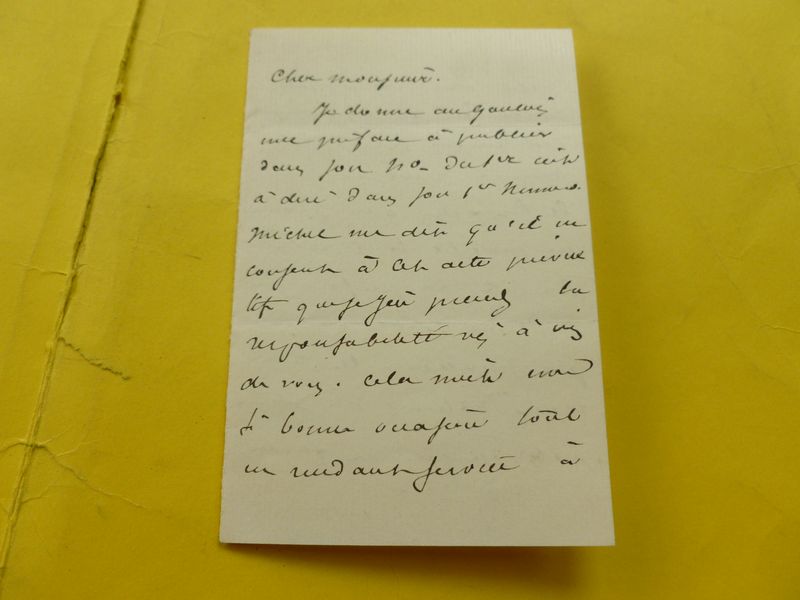 Cher monsieur.
Je donne au Gaulois
une préface à publier
dans son No. du 1er c'est
à dire dans son 1er Numero.
Michel me dit qu'il ne
consent à cet acte
que si j'en prends la
responsabilité vis à vis
de vous. Cela m'est une
si bonne occasion tout
en rendant service à